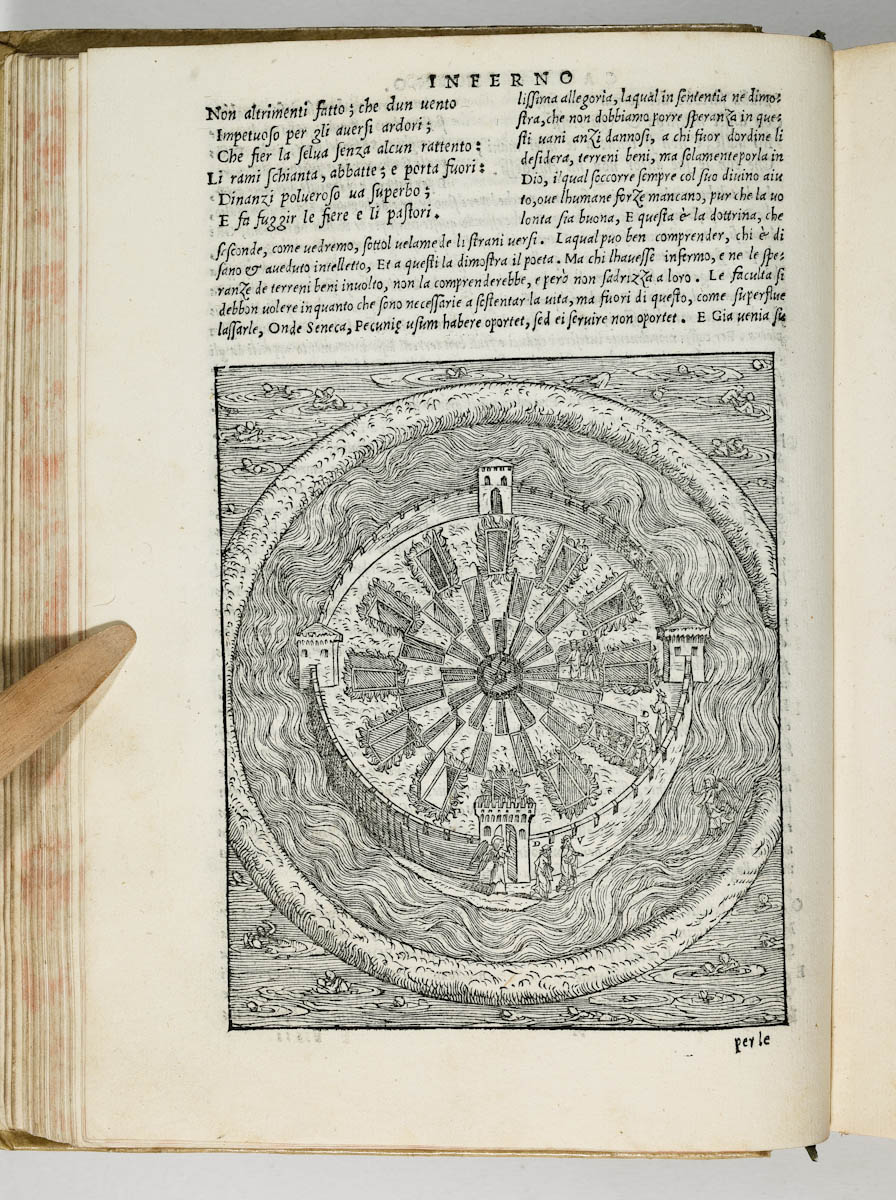 INFERNO
Non altrimenti fatto; che dun vento
Impetuoso per gli aversi ardori;
Che fier la selua senza alcun rattento:
Li rami schianta, abbatte; e porta fuori:
Dinanzi polueroso ua superbo;
E fa fuggir le fiere e li pastori.
lissima allegoria, laqual in sententia ne dimo-
stra, che non dobbiamo porre speranza in que-
sti uani anzi dannosi, a chi fuor dordine li
desidera, terreni beni, ma solamente porla in
Dio, il qual soccorre sempre col suo diuino aiu
to, oue lhumane forze mancano, pur che la uo
lonta sia buona, E questa è la dottrina, che
sesconde, come uedremo, sottol uelame de li strani uersi. Laqual puo ben comprender, chi è di
sano & aueduto intelletto, Et a questi la dimostra il poeta. Ma chi lhauesse infermo, e ne le spe-
ranze de terreni beni inuolto, non la comprenderebbe, e però non sadrizza a loro. Le faculta si
debbon uolere inquanto che sono necessarie a sestentar la uita, ma fuori di questo, come superflue
lassarle, Onde Seneca, Pecunię usum habere oportet, sed ei seruire non oportet. E Gia uenia su
V D
D
D V
per le